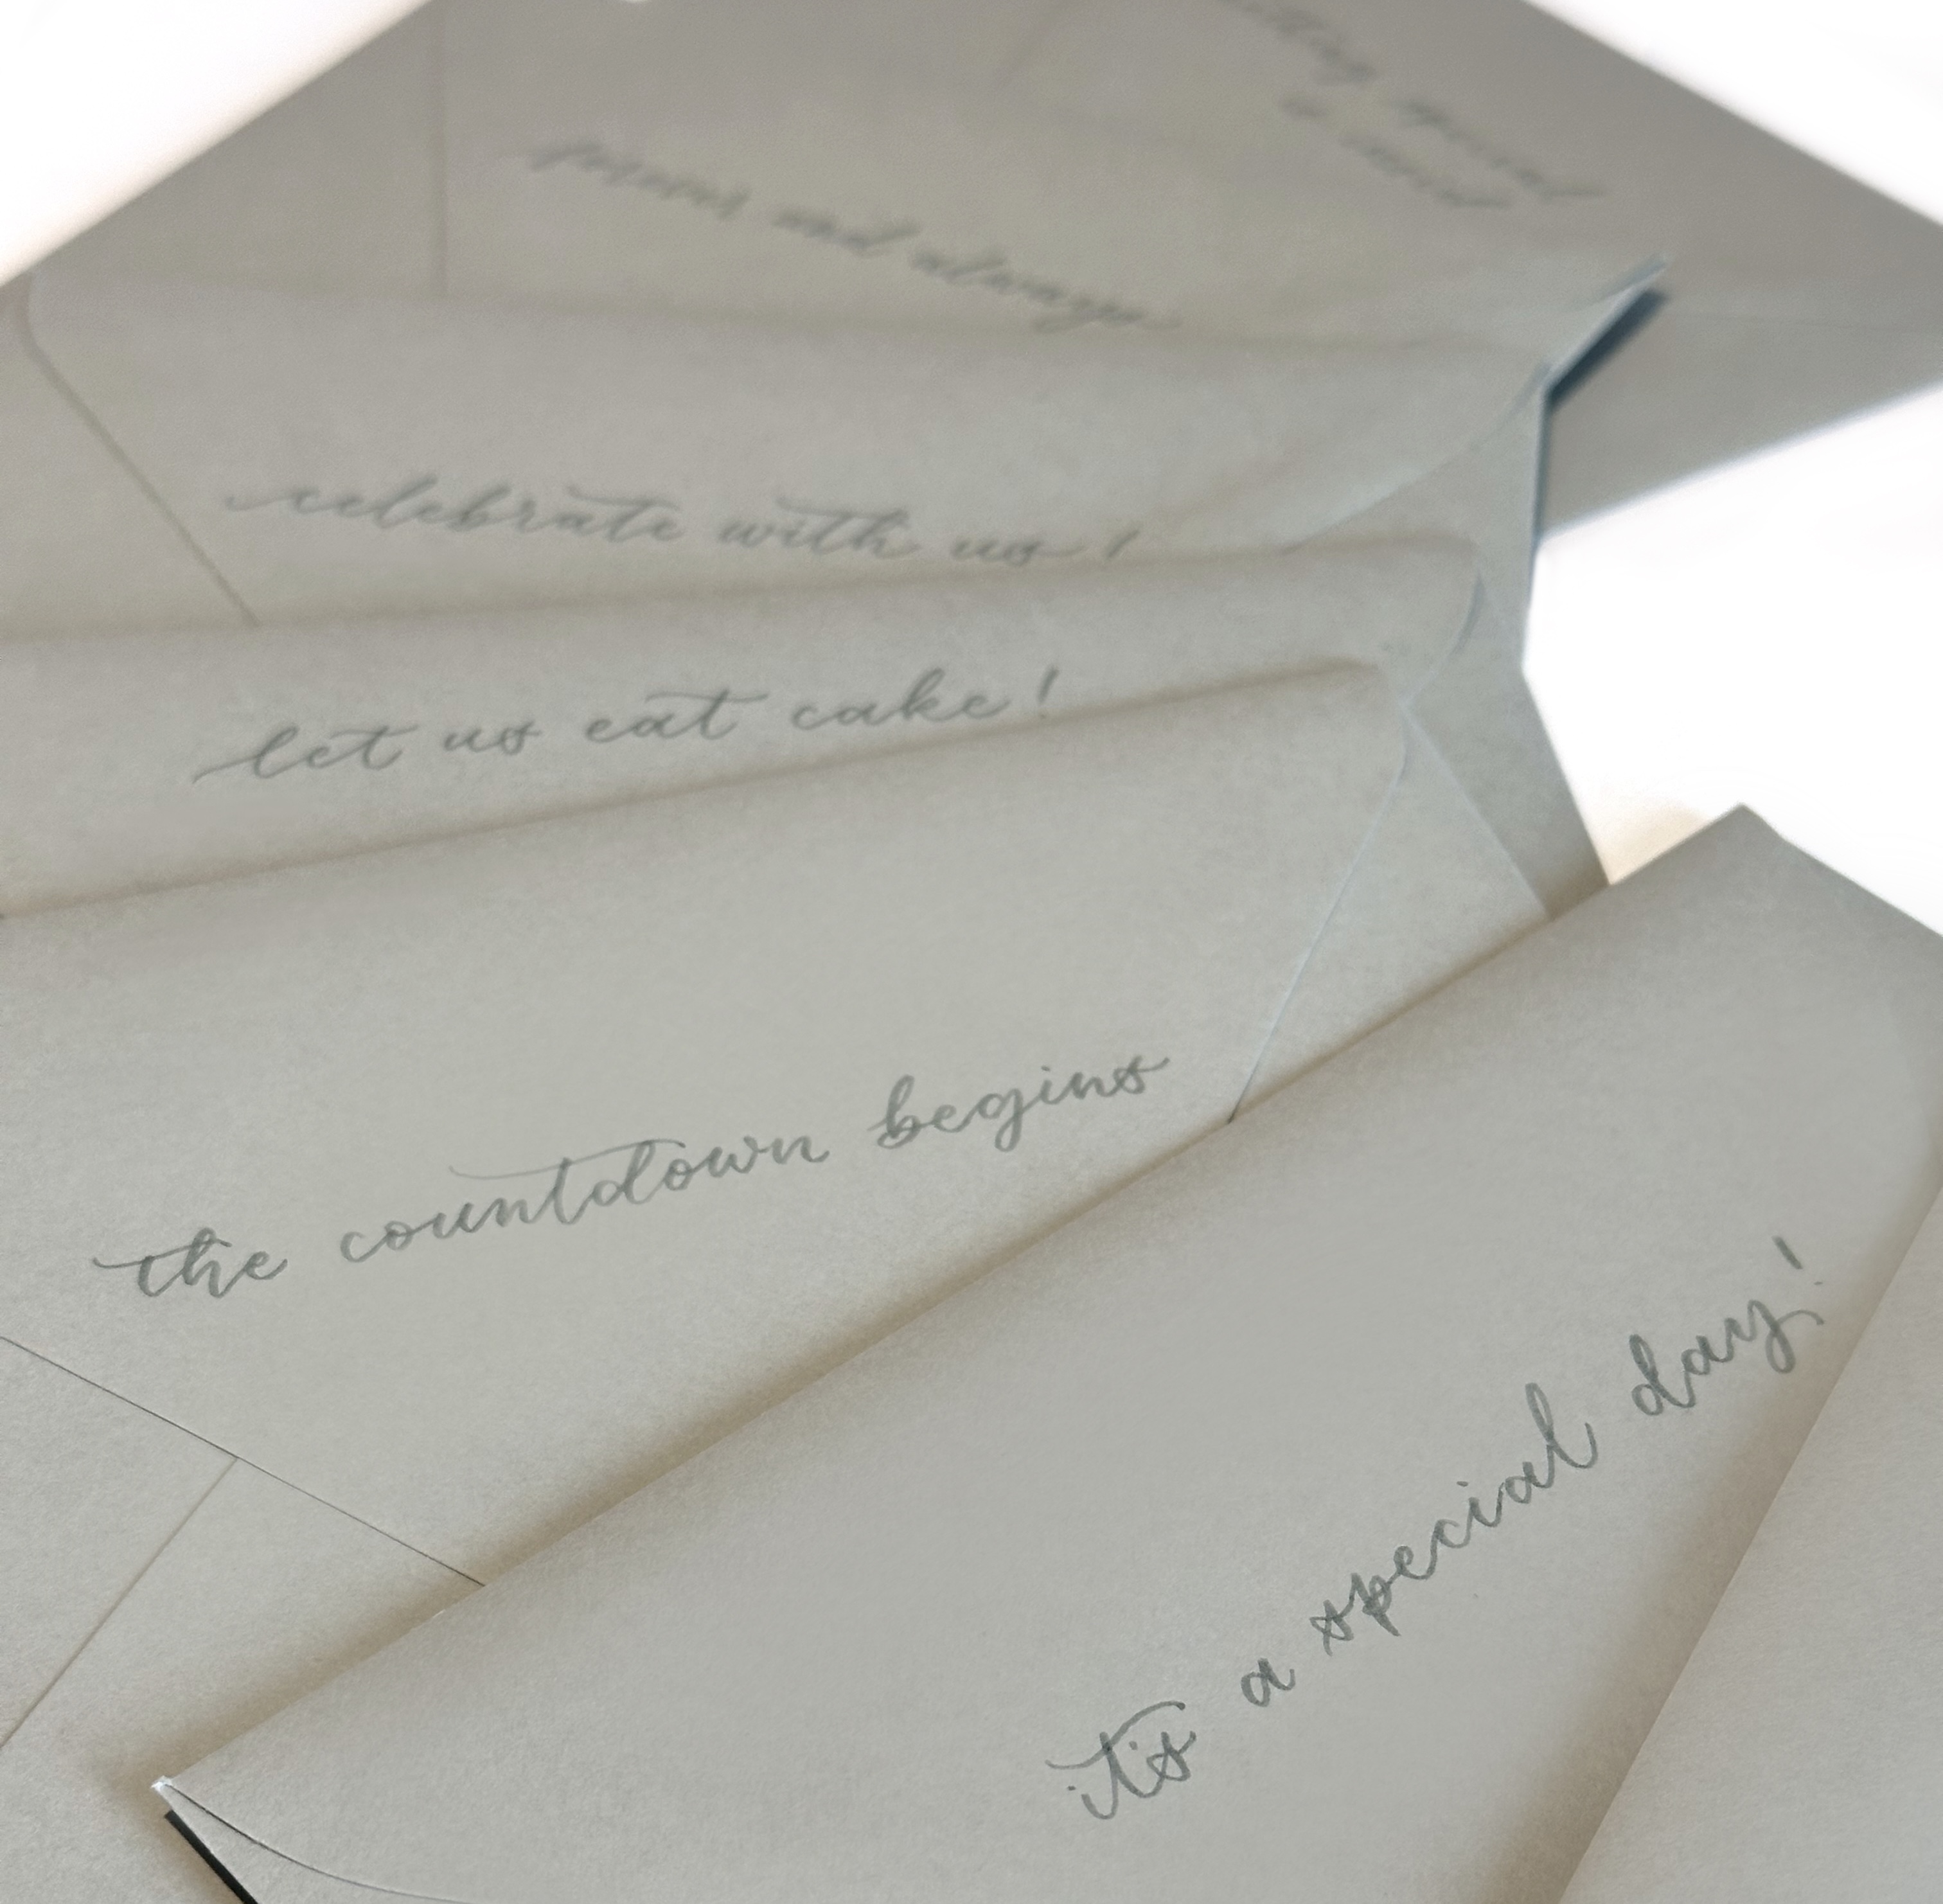 special
forever and always
celebrate with us!
let us eat cake!
the countdown begins
it's a special day!